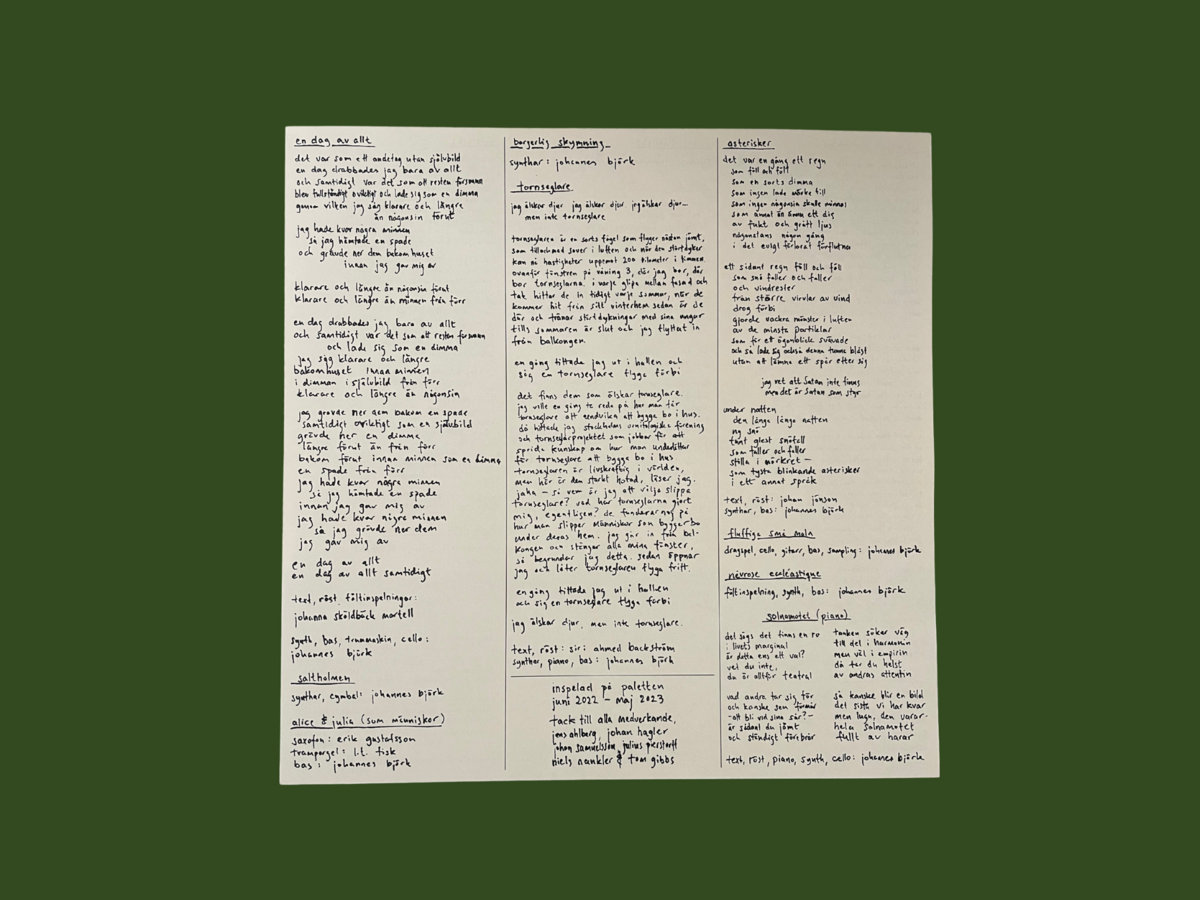 en dag av allt
det var som ett andetag utan självbild
en dag drabbades jag bara av allt
och samtidigt var det som att resten försvann
blev fullständigt oviktigt och lade sig som en dimma
genom vilken jag såg klarare och längre
än någonsin förut
jag hade kvar några minnen
så jag hämtade en spade
och grävde ner dem bakom huset
innan jag gav mig av
klarare och längre än någonsin förut
klarare och längre än minnen från förr
en dag drabbades jag bara av allt
och samtidigt var det som att resten försvann
och lade sig som en dimma
jag såg klarare och längre
bakom huset innan minnen
i dimman i självbild från förr
klarare och längre än någonsin
jag grävde ner dem bakom en spade
samtidigt oviktigt som en självbild
grävde ner en dimma
längre förut än från förr
bakom förut innan minnen som en dimma
en spade från förr
jag hade kvar några minnen
så jag hämtade en spade
innan jag gav mig av
jag hade kvar några minnen
så jag grävde ner dem
jag gav mig av
en dag av allt
en dag av allt samtidigt
text, röst fältinspelningar:
johanna sköldbäck martell
synth, bas, trummaskin, cello:
johannes björk
saltholmen
synthar, cymbal: johannes björk
alice & julia (som människor)
saxofon: erik gustafsson
tramporgel: l.t. fisk
bas: johannes björk
borgerlig skymning
synthar: johannes björk
tornseglare
jag älskar djur jag älskar djur jag älskar djur—
men inte tornseglare
tornseglaren är en sorts fågel som flyger nästan jämt,
som till och med sover i luften och när den störtdyker
kan nå hastigheter uppemot 200 kilometer i timmen.
ovanför fönstren på våning 3, där jag bor, där
bor tornseglarna. i varje glipa mellan fasad och
tak hittar de in tidigt varje sommar, när de
kommer hit från sitt vinterhem sedan är de
där och tränar störtdykningar med sina ungar
tills sommaren är slut och jag flyttat in
från balkongen.
en gång tittade jag ut i hallen och
såg en tornseglare flyga förbi
det finns dem som älskar tornseglare.
jag ville en gång ta reda på hur man får
tornseglare att undvika att bygga bo i hus.
då hittade jag stockholms ornitologiska förening
och tornseglarprojektet som jobbar för att
sprida kunskap om hur man underlättar
för tornseglare att bygga bo i hus
tornseglaren är livskraftig i världen,
men här är den starkt hotad, läser jag.
jaha – så vem är jag att vilja slippa
tornseglare? vad har tornseglarna gjort
mig, egentligen? de funderar nog på
hur man slipper människor som bygger bo
under deras hem. jag går in från bal-
kongen och stänger alla mina fönster,
så begrundar jag detta. sedan öppnar
jag och låter tornseglaren flyga fritt.
en gång tittade jag ut i hallen
och såg en tornseglare flyga förbi
jag älskar djur. men inte tornseglare.
text, röst: siri ahmed backström
synthar, piano, bas: johannes björk
inspelad på paletten
juni 2022 – maj 2023
tack till alla medverkande,
jens ahlberg, johan hagler
johan samuelsson, julius pierstorff
niels nankler & tom gibbs
asterisker
det var en gång ett regn
som föll och föll
som en sorts dimma
som ingen lade märke till
som ingen någonsin skulle minnas
som annat än ännu ett dis
av fukt och grått ljus
någonstans någon gång
i det evigt förlorat förflutna
ett sådant regn föll och föll
som snö faller och faller
och vindrester
från större virvlar av vind
drog förbi
gjorde vackra mönster i luften
av de minsta partiklar
som för ett ögonblick svävade
och så lade sig också denna tunna blåst
utan att lämna ett spår efter sig
jag vet att Satan inte finns
men det är Satan som styr
under natten
den långa långa natten
ny snö
tunt glest snöfall
som faller och faller
stilla i mörkret –
som tysta blinkande asterisker
i ett annat språk
text, röst: johan jönson
synthar, bas: johannes björk
fluffiga små moln
dragspel, cello, gitarr, bas, sampling: johannes björk
névrose eccléastique
fältinspelning, synth, bas: johannes björk
solnamotet (piano)
det sägs det finns en ro
i livets marginal
är detta ens ett val?
vet du inte,
du är alltför teatral
vad andra tar sig för
och kanske som förmår
–att bli vid sina sår?–
är sådant du jämt
och ständigt förebrår
tanken söker väg
till del i harmonin
men väl i empirin
då tar du helst
av andras attentin
så kanske blir en bild
det sista vi har kvar
men lugn, den varar.
hela solnamotet
fullt av harar
text, röst, piano, synth, cello: johannes björk